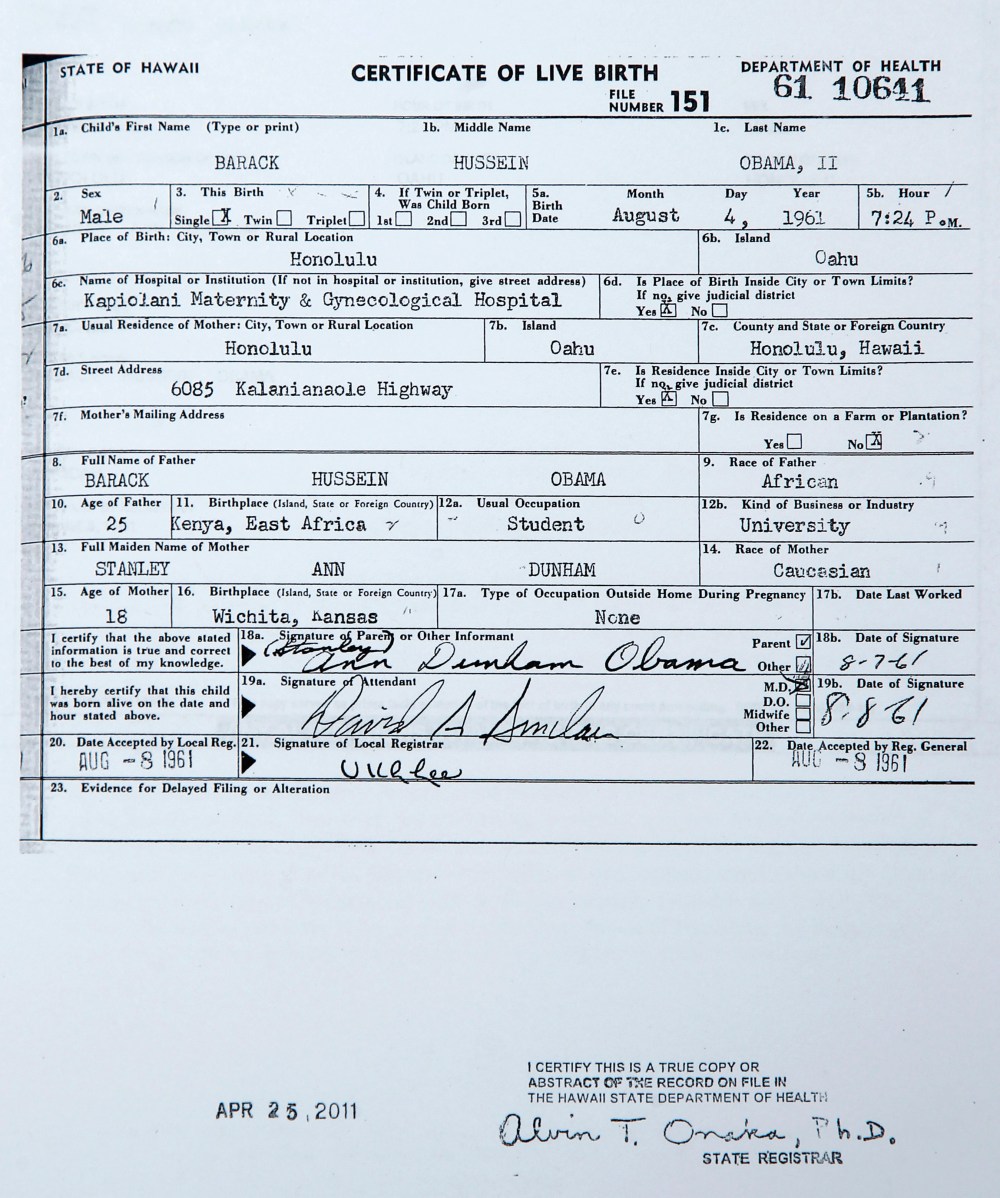 STATE OF HAWAII
CERTIFICATE OF LIVE BIRTH
DEPARTMENT OF HEALTH
FILE NUMBER 151
61 10641
1a. Child's First Name (Type or print) 1b. Middle Name 1c. Last Name
BARACK HUSSEIN OBAMA, II
2. Sex 3. This Birth 4. If Twin or Triplet, Was Child Born 5a. Birth Date Month Day Year 5b. Hour
Male Single X Twin Triplet 1st 2nd 3rd August 4, 1961 7:24 P.M.
6a. Place of Birth: City, Town or Rural Location 6b. Island
Honolulu Oahu
6c. Name of Hospital or Institution (If not in hospital or institution, give street address) 6d. Is Place of Birth Inside City or Town Limits?
If no, give judicial district
Kapiolani Maternity & Gynecological Hospital Yes X No
7a. Usual Residence of Mother: City, Town or Rural Location 7b. Island 7c. County and State or Foreign Country
Honolulu Oahu Honolulu, Hawaii
7d. Street Address 7e. Is Residence Inside City or Town Limits?
If no, give judicial district
6085 Kalanianaole Highway Yes X No
7f. Mother's Mailing Address 7g. Is Residence on a Farm or Plantation?
Yes No X
8. Full Name of Father 9. Race of Father
BARACK HUSSEIN OBAMA African
10. Age of Father 11. Birthplace (Island, State or Foreign Country) 12a. Usual Occupation 12b. Kind of Business or Industry
25 Kenya, East Africa Student University
13. Full Maiden Name of Mother 14. Race of Mother
STANLEY ANN DUNHAM Caucasian
15. Age of Mother 16. Birthplace (Island, State or Foreign Country) 17a. Type of Occupation Outside Home During Pregnancy 17b. Date Last Worked
18 Wichita, Kansas None
I certify that the above stated
information is true and correct
to the best of my knowledge.
18a. Signature of Parent or Other Informant Parent Other 18b. Date of Signature
(Stanley) Ann Dunham Obama 8-7-61
I hereby certify that this child
was born alive on the date and
hour stated above.
19a. Signature of Attendant M.D. D.O. Midwife Other 19b. Date of Signature
David A Sinclair 8-8-61
20. Date Accepted by Local Reg. 21. Signature of Local Registrar 22. Date Accepted by Reg. General
AUG -8 1961 AUG -8 1961
23. Evidence for Delayed Filing or Alteration
I CERTIFY THIS IS A TRUE COPY OR
ABSTRACT OF THE RECORD ON FILE IN
THE HAWAII STATE DEPARTMENT OF HEALTH
APR 25, 2011
Alvin T. Onaka, Ph.D.
STATE REGISTRAR